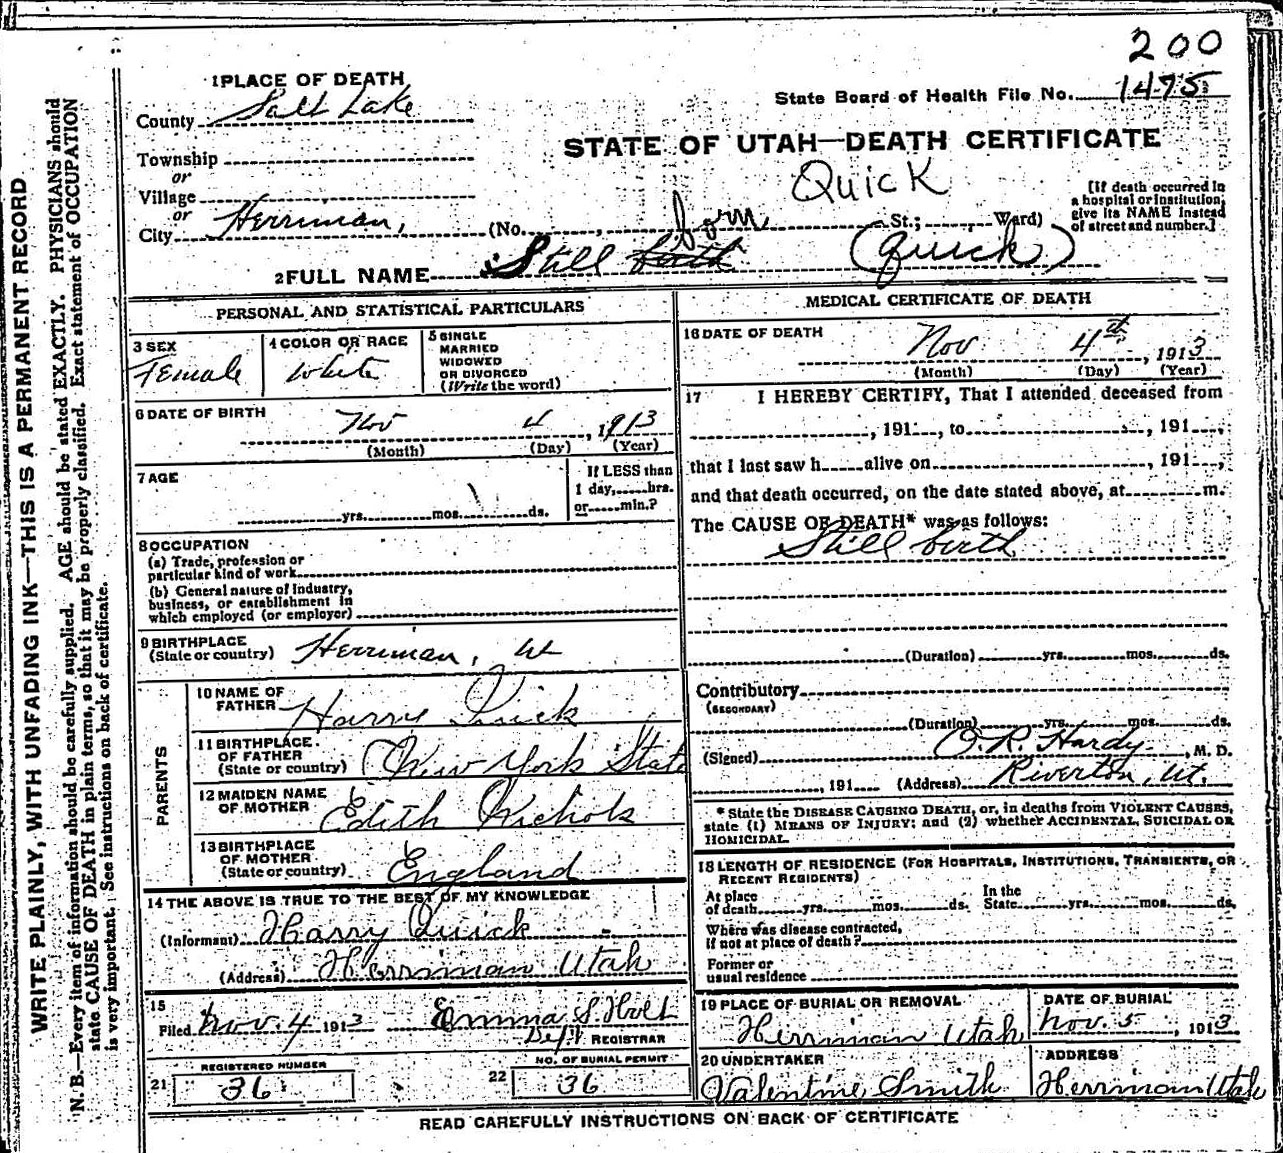 200
1 PLACE OF DEATH
State Board of Health File No. 1475
County Salt Lake
STATE OF UTAH—DEATH CERTIFICATE
Township
or
Quick
Village
or
[If death occurred in
a hospital or institution,
give its NAME instead
of street and number.]
City Herriman, (No. St.; Ward)
born
2 FULL NAME Still birth (Quick)
PERSONAL AND STATISTICAL PARTICULARS
3 SEX
Female
4 COLOR OR RACE
White
5 SINGLE
MARRIED
WIDOWED
OR DIVORCED
(Write the word)
6 DATE OF BIRTH
Nov 4, 1913
(Month) (Day) (Year)
7 AGE
yrs. mos. ds.
If LESS than
1 day, hrs.
or min.?
8 OCCUPATION
(a) Trade, profession or
particular kind of work
(b) General nature of industry,
business, or establishment in
which employed (or employer)
9 BIRTHPLACE
(State or country) Herriman, Ut
PARENTS
10 NAME OF
FATHER Harry Quick
11 BIRTHPLACE
OF FATHER
(State or country) New York State
12 MAIDEN NAME
OF MOTHER Edith Nichols
13 BIRTHPLACE
OF MOTHER
(State or country) England
14 THE ABOVE IS TRUE TO THE BEST OF MY KNOWLEDGE
(Informant) Harry Quick
(Address) Herriman Utah
15
Filed Nov. 4 1913 Emma S. Holt
Dept REGISTRAR
REGISTERED NUMBER
21 36
NO. OF BURIAL PERMIT
22 36
MEDICAL CERTIFICATE OF DEATH
16 DATE OF DEATH
Nov 4th, 1913
(Month) (Day) (Year)
17 I HEREBY CERTIFY, That I attended deceased from
, 191 , to , 191 ,
that I last saw h alive on , 191 ,
and that death occurred, on the date stated above, at m.
The CAUSE OF DEATH* was as follows:
Still birth
(Duration) yrs. mos. ds.
Contributory
(SECONDARY)
(Duration) yrs. mos. ds.
(Signed) O. R. Hardy, M. D.
, 191 (Address) Riverton, Ut.
* State the DISEASE CAUSING DEATH, or, in deaths from VIOLENT CAUSES,
state (1) MEANS OF INJURY; and (2) whether ACCIDENTAL, SUICIDAL OR
HOMICIDAL.
18 LENGTH OF RESIDENCE (FOR HOSPITALS, INSTITUTIONS, TRANSIENTS, OR
RECENT RESIDENTS)
At place
of death yrs. mos. ds.
In the
State yrs. mos. ds.
Where was disease contracted,
if not at place of death?
Former or
usual residence
19 PLACE OF BURIAL OR REMOVAL
Herriman Utah
DATE OF BURIAL
Nov. 5, 1913
20 UNDERTAKER
Valentine Smith
ADDRESS
Herriman Utah
READ CAREFULLY INSTRUCTIONS ON BACK OF CERTIFICATE
WRITE PLAINLY, WITH UNFADING INK—THIS IS A PERMANENT RECORD
N. B.—Every item of information should be carefully supplied. AGE should be stated EXACTLY. PHYSICIANS should
state CAUSE OF DEATH in plain terms, so that it may be properly classified. Exact statement of OCCUPATION
is very important. See instructions on back of certificate.